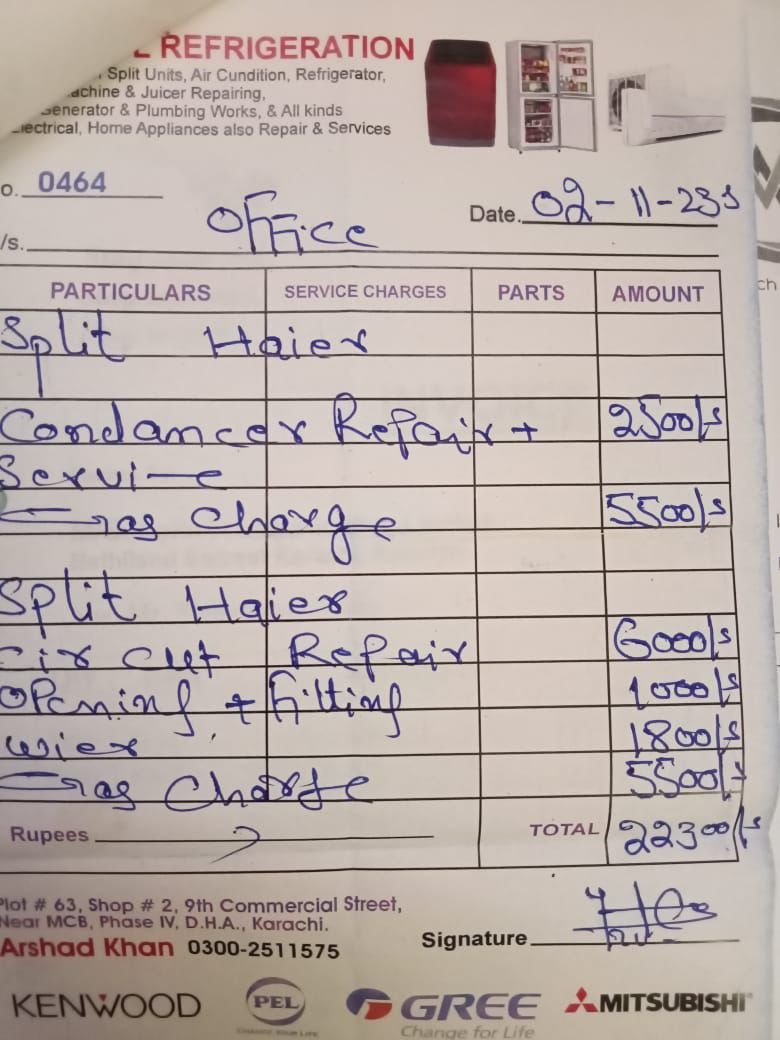 REFRIGERATION
Split Units, Air Cundition, Refrigerator,
achine & Juicer Repairing,
enerator & Plumbing Works, & All kinds
lectrical, Home Appliances also Repair & Services
o. 0464
Office
Date. 02-11-23
/s.
PARTICULARS SERVICE CHARGES PARTS AMOUNT
Split Haier
Condancer Refair + 2500/s
Servi-e
Gas Charge 5500/s
Split Haier
Cir cut Repair 6000/s
OPening + Fitting 1000/s
wier 1800/s
Gas Charge 5500/s
Rupees TOTAL 22300/s
Plot # 63, Shop # 2, 9th Commercial Street,
Near MCB, Phase IV, D.H.A., Karachi.
Arshad Khan 0300-2511575
Signature
KENWOOD PEL GREE MITSUBISHI
CHANGE YOUR LIFE Change for Life
ch